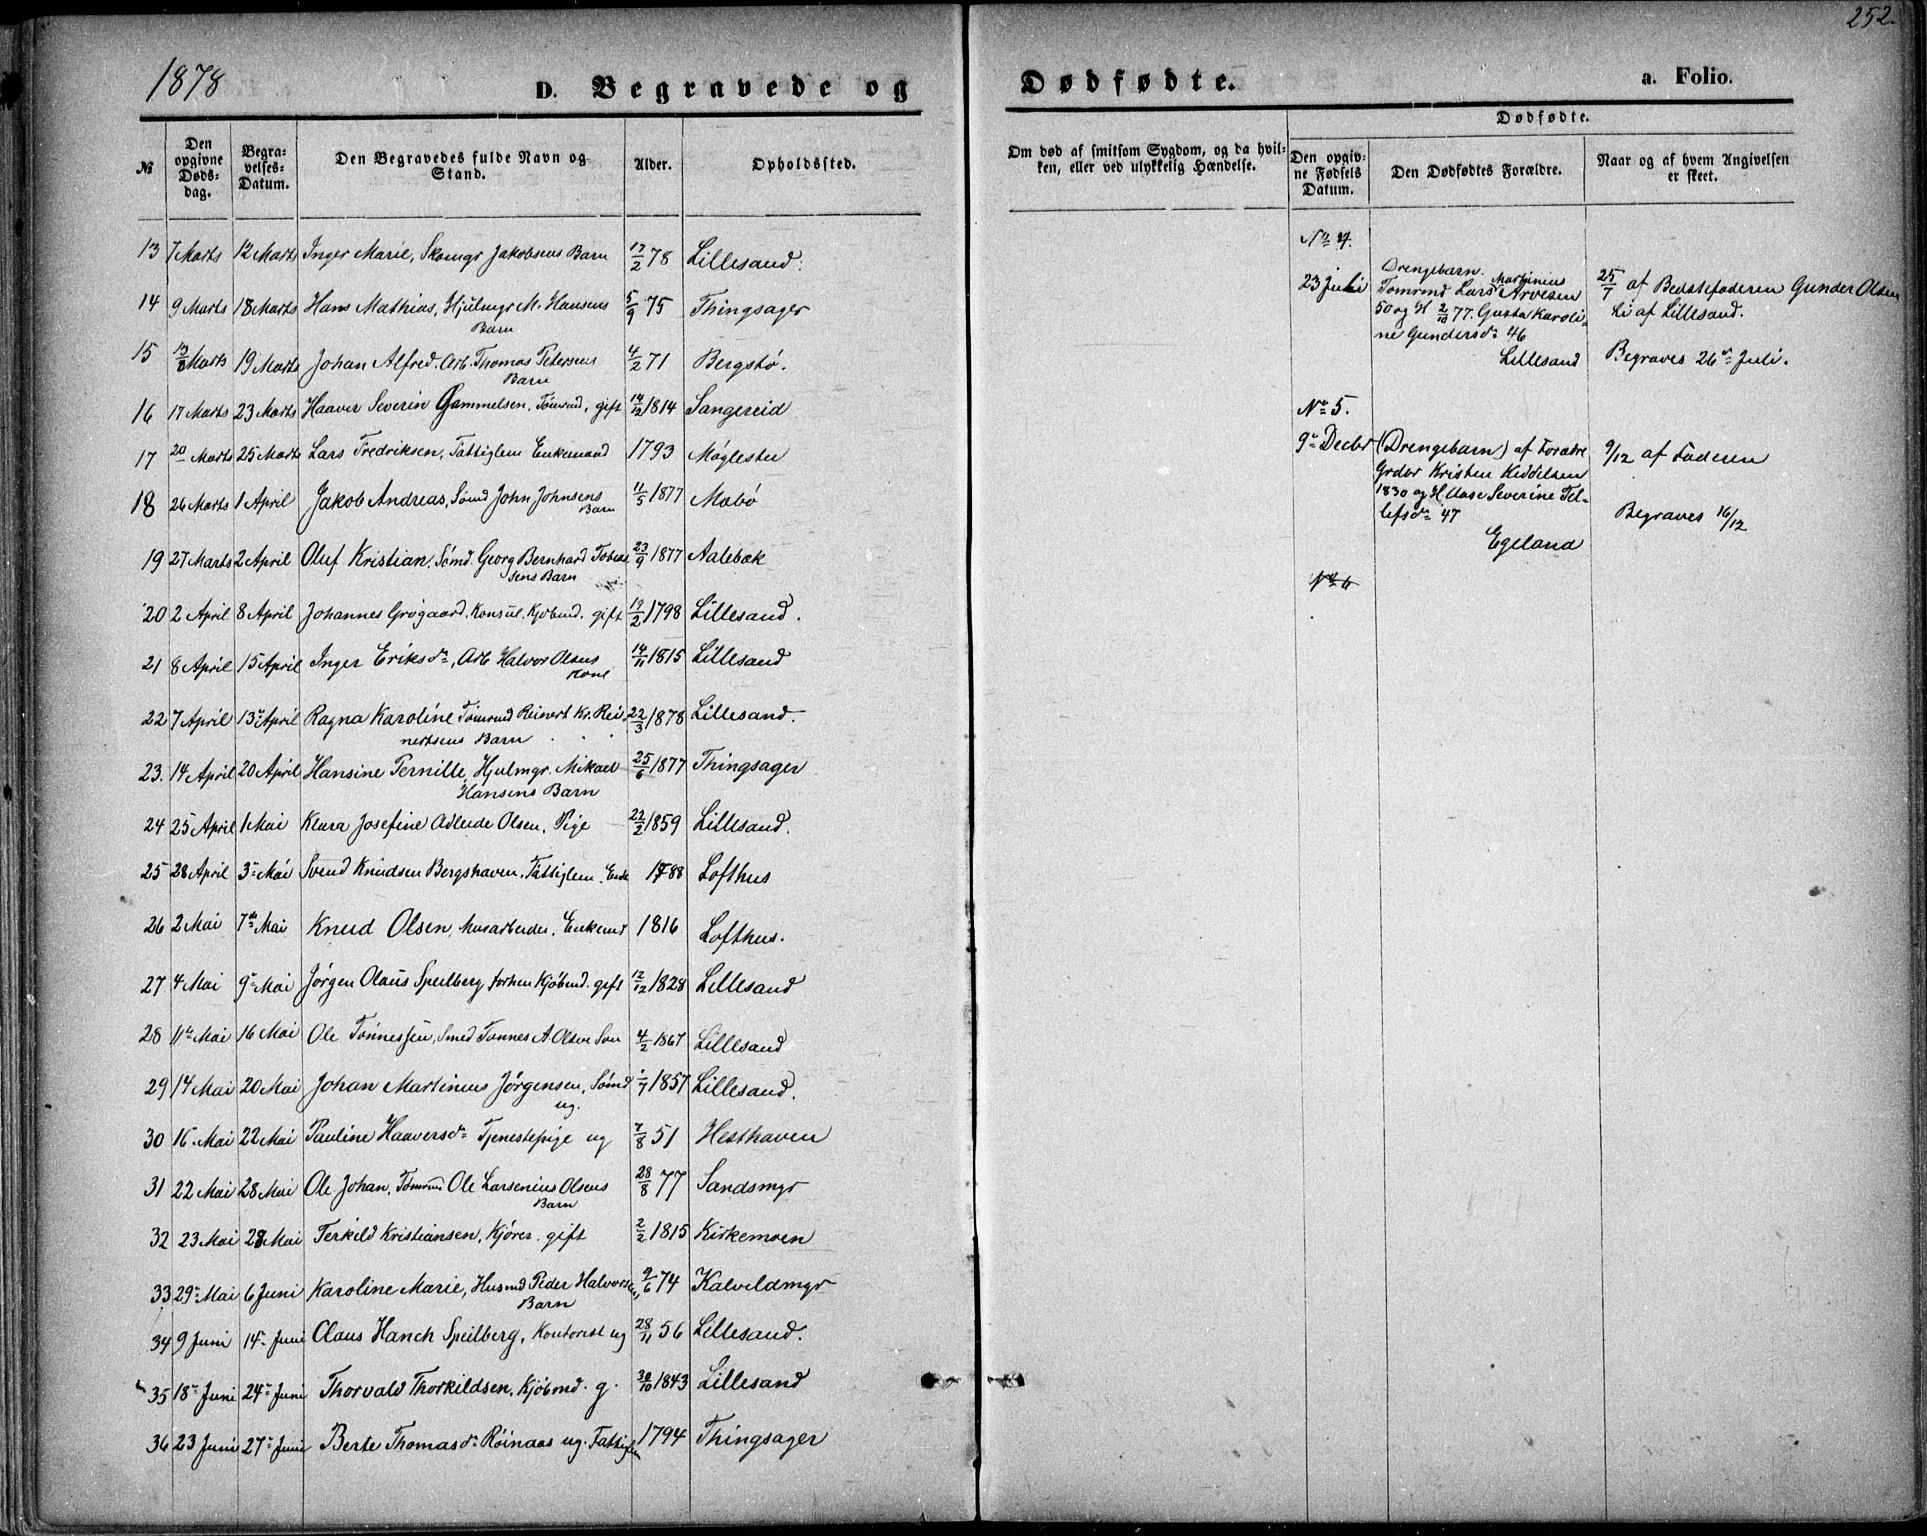 252.
1878
D. Begravede og Dødfødte.
a. Folio.
№
Den opgivne Døds-dag.
Begra-velses-Datum.
Den Begravedes fulde Navn og Stand.
Alder.
Opholdssted.
Om død af smitsom Sygdom, og da hvil-ken, eller ved ulykkelig Hændelse.
Dødfødte.
Den opgiv-ne Fødsels Datum.
Den Dødfødtes Forældre.
Naar og af hvem Angivelsen er skeet.
13 7 Marts 12 Marts Inger Marie, Skomgr Jakobsens Barn 17/2 78 Lillesand.
14 9 Marts 18 Marts Hans Mathias, Hjulmgr M. Hansens Barn 5/9 75 Thingsager
15 13/3 Marts 19 Marts Johan Alfred. Arb. Thomas Petersens Barn 4/2 71 Bergstø.
16 17 Marts 23 Marts Haaver Severin Gammelsen, Tømmd, gift 14/12 1814 Sangereid
17 20 Marts 25 Marts Lars Fredriksen, Fattiglem Enkemand 1793 Møglestu
18 26 Marts 1 April Jakob Andreas, Sømd John Johnsens Barn 11/5 1877 Mobø
19 27 Marts 2 April Oluf Kristian, Sømd. Georg Bernhard Tobias
sens Barn 23/9 1877 Aalebæk
20 2 April 8 April Johannes Grøgaard, Konsul. Kjøbmd. gift 19/2 1798 Lillesand.
21 8 April 15 April Inger Eriksdr, Arb Halvor Olsens Kone 14/11 1815 Lillesand
22 7 April 13 April Ragna Karoline Tømmd Reinert Kr. Rei-
nertsens Barn 22/3 1878 Lillesand.
23. 14 April 20 April Hansine Pernille, Hjulmgr. Mikael
Hansens Barn 25/6 1877 Thingsager
24 25 April 1 Mai Klara Josefine Adleide Olsen, Pige 22/2 1859 Lillesand.
25 28 April 3 Mai Svend Knudsen Bergshaven, Fattiglem. Enke 1788 Lofthus
26 2 Mai 7de Mai Knud Olsen, Enkemd 1816 Lofthus.
27 4 Mai 9 Mai Jørgen Olaus Speilberg, forhen Kjøbmd. gift 12/12 1828 Lillesand
28 11te Mai 16 Mai Ole Tønnessen, Smed Tønnes A. Olsen Søn 4/2 1867 Lillesand
29 14 Mai 20 Mai Johan Martinius Jørgensen, Sømd
ug. /7 1857 Lillesand.
30 16 Mai 22 Mai Pauline Haaversdr Tjenestepige ug 7/8 51 Hesthaven
31 22 Mai 28 Mai Ole Johan, Tømmd Ole Larsenius Olsens
Barn 28/8 77 Sandsmyr
32 23 Mai 28 Mai Terkild Kristiansen, Kjører. gift 2/2 1815 Kirkemoen
33 29 Mai 6 Juni Karoline Marie, Husmd Peder Halvorsens
Barn 9/6 74 Kalveldmyr
34 9 Juni 14 Juni Claus Hanch Speilberg, Kontorist ug 28/11 56 Lillesand.
35 18 Juni 24 Juni Thorvald Thorkildsen, Kjøbmd. g. 30/10 1843 Lillesand
36 23 Juni 27 Juni Berte Thomasdr Røinaas ug. Fattiglem 1794 Thingsager
No 4.
23 Juli
Drengebarn.
Tømmd Lars Martinius Arvesen
50 og H 2/10 77. Gusta Karoli-
ne Gundersdr 46
Lillesand
25/7 af Bedstefaderen Gunder Olsen
Li af Lillesand.
Begraves 26de Juli.
No 5.
9 Decbr
(Drengebarn) af Forældre
Grdbr Kristen Keddelsen
1830 og H Aase Severine Tel-
lefsdr 47
Egeland
9/12 af Faderen
Begraves 16/12
No 6